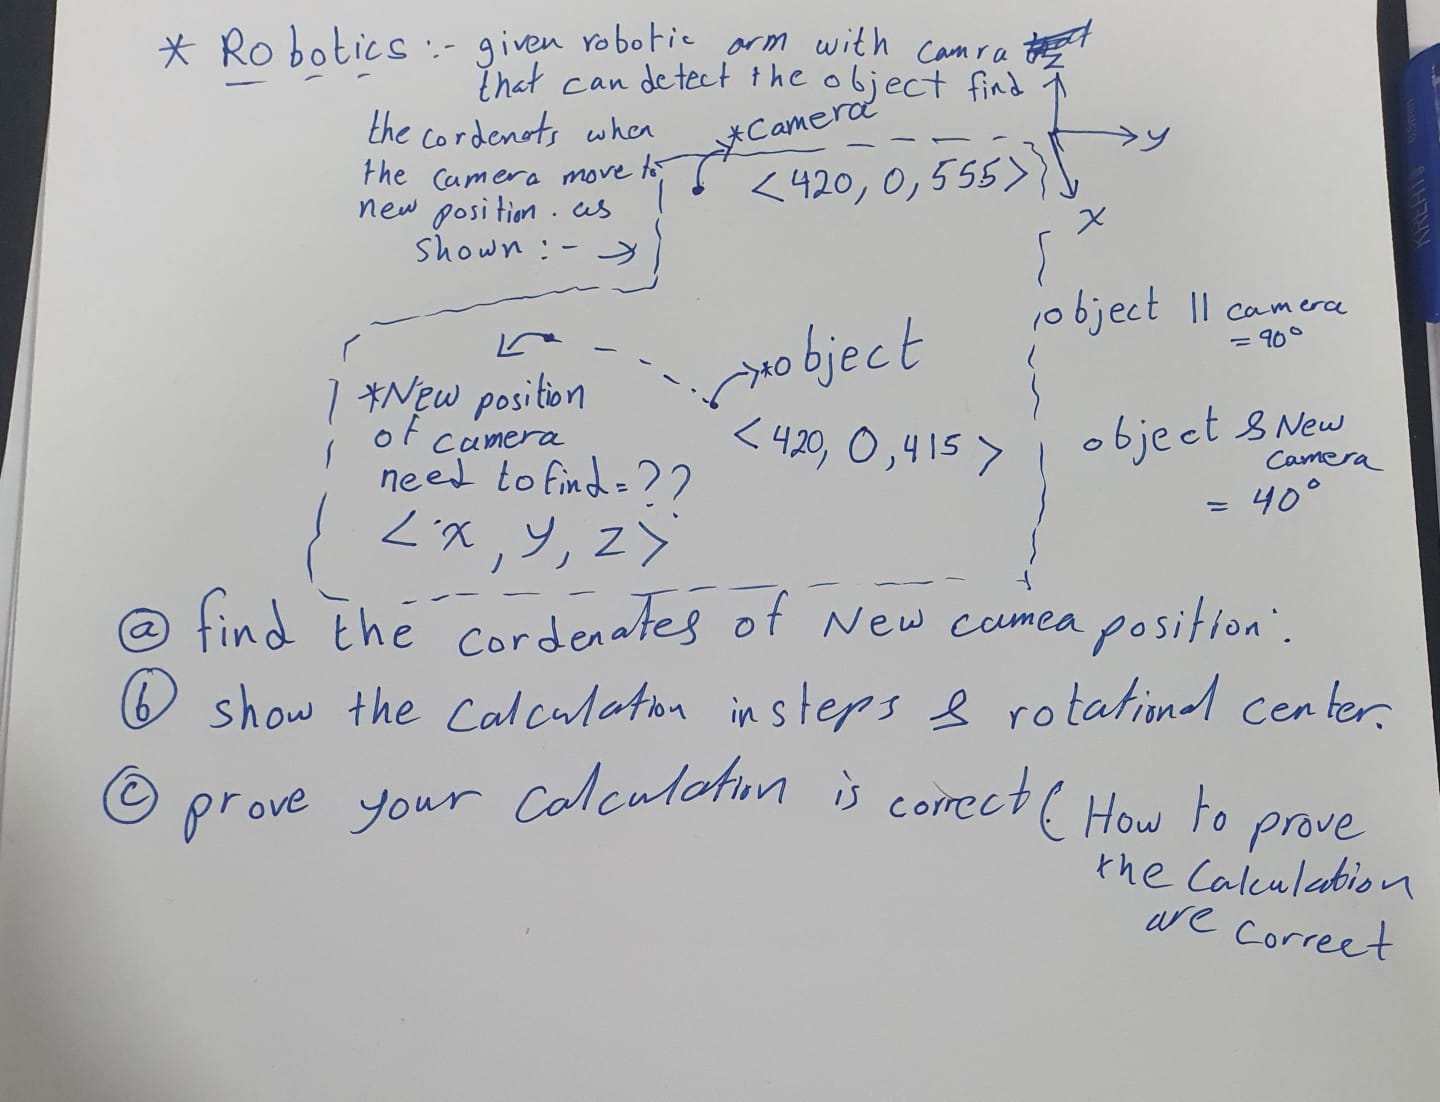 * Robotics :- given robotic arm with camra
that can detect the object find
the cordenots when
the camera move to
new position. as
shown :- →
*Camera
<420, 0, 555>
z
y
x
object || camera
= 90°
*object
<420, 0, 415>
object & New
camera
= 40°
*New position
of camera
need to find = ??
<x, y, z>
ⓐ find the cordenates of New camea position.
ⓑ show the calculation in steps & rotational center.
ⓒ prove your calculation is correct (How to prove
the calculation
are correct
KREHT